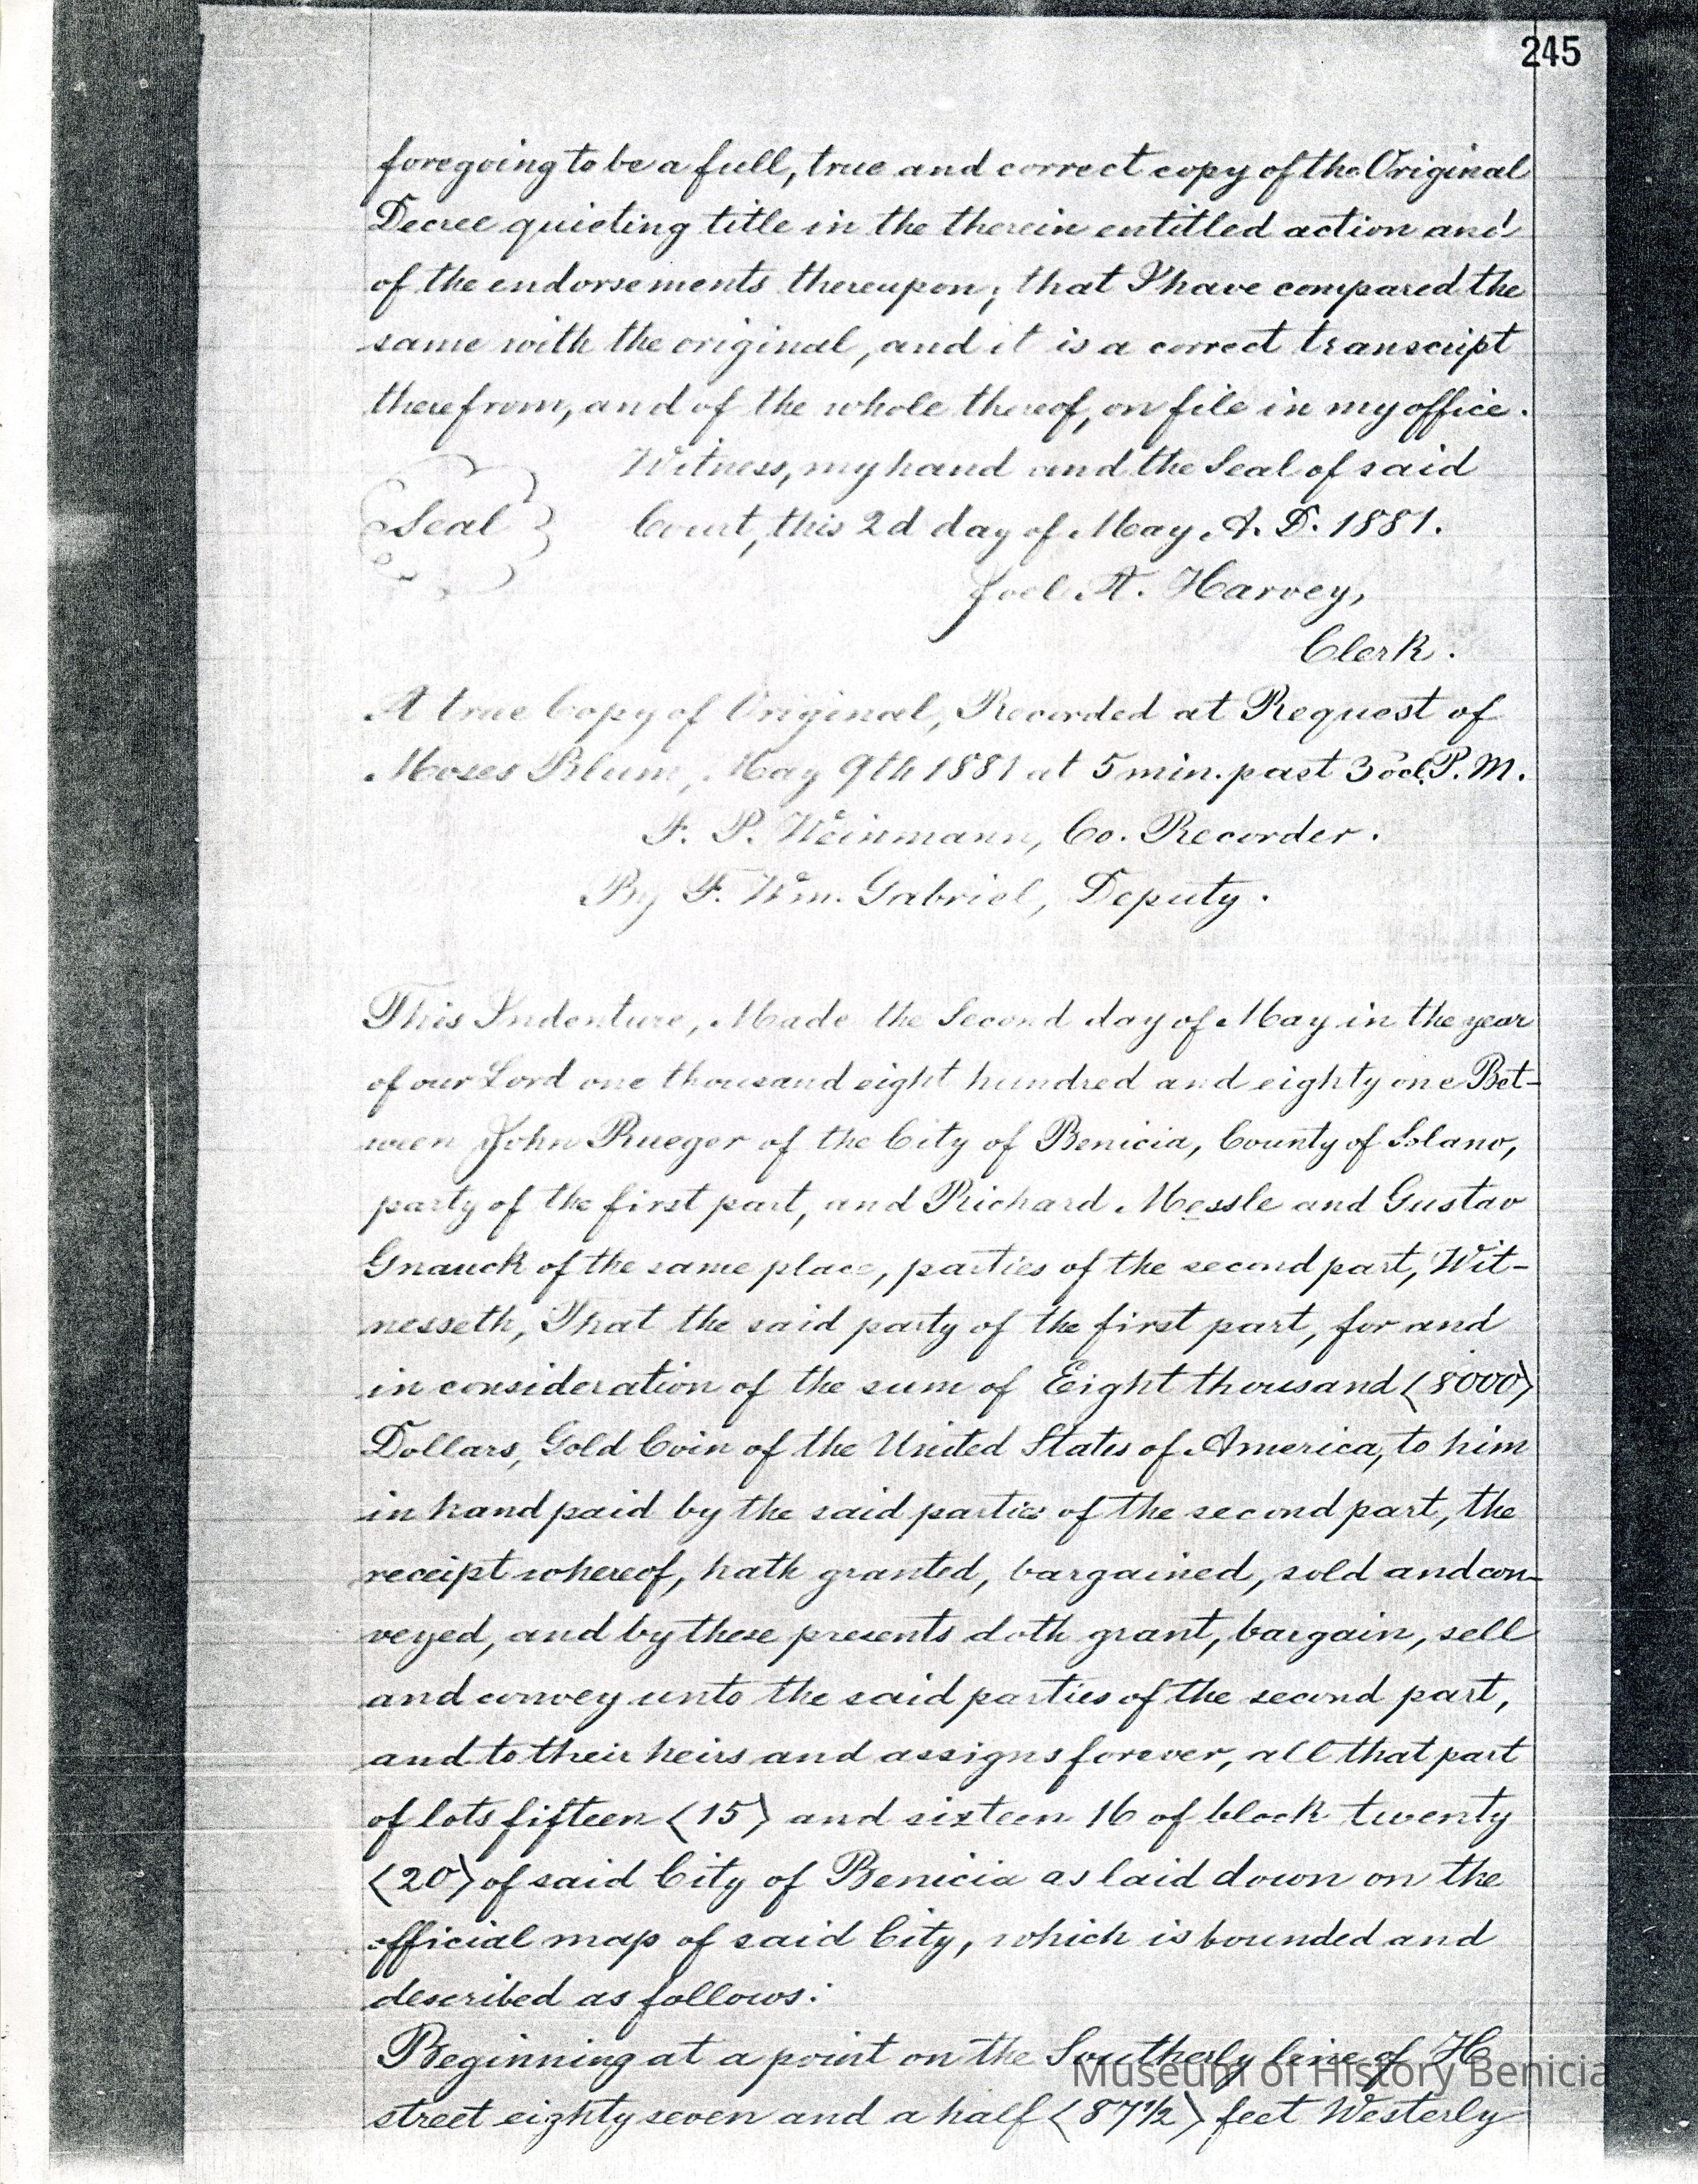 245
foregoing to be a full, true and correct copy of the Original
Decree quieting title in the therein entitled action and
of the endorsements thereupon; that I have compared the
same with the original, and it is a correct transcript
therefrom, and of the whole thereof, on file in my office.
Witness, my hand and the Seal of said
Seal Court, this 2d day of May, A. D. 1881.
Joel A. Harvey,
Clerk.
A true Copy of Original, Recorded at Request of
Moses Blum, May 9th 1881 at 5 min. past 3 ocl. P. M.
F. P. Weinmann, Co. Recorder.
By F. Wm. Gabriel, Deputy.
This Indenture, Made the Second day of May in the year
of our Lord one thousand eight hundred and eighty one Bet-
ween John Rueger of the City of Benicia, County of Solano,
party of the first part, and Richard Messle and Gustav
Gnauck of the same place, parties of the second part, Wit-
nesseth, That the said party of the first part, for and
in consideration of the sum of Eight thousand (8000)
Dollars, Gold Coin of the United States of America, to him
in hand paid by the said parties of the second part, the
receipt whereof, hath granted, bargained, sold and con-
veyed, and by these presents doth grant, bargain, sell
and convey unto the said parties of the second part,
and to their heirs and assigns forever, all that part
of lots fifteen (15) and sixteen 16 of block twenty
(20) of said City of Benicia as laid down on the
official map of said City, which is bounded and
described as follows:
Beginning at a point on the Southerly line of H
street eighty seven and a half (87 1/2) feet Westerly
Museum of History Benicia